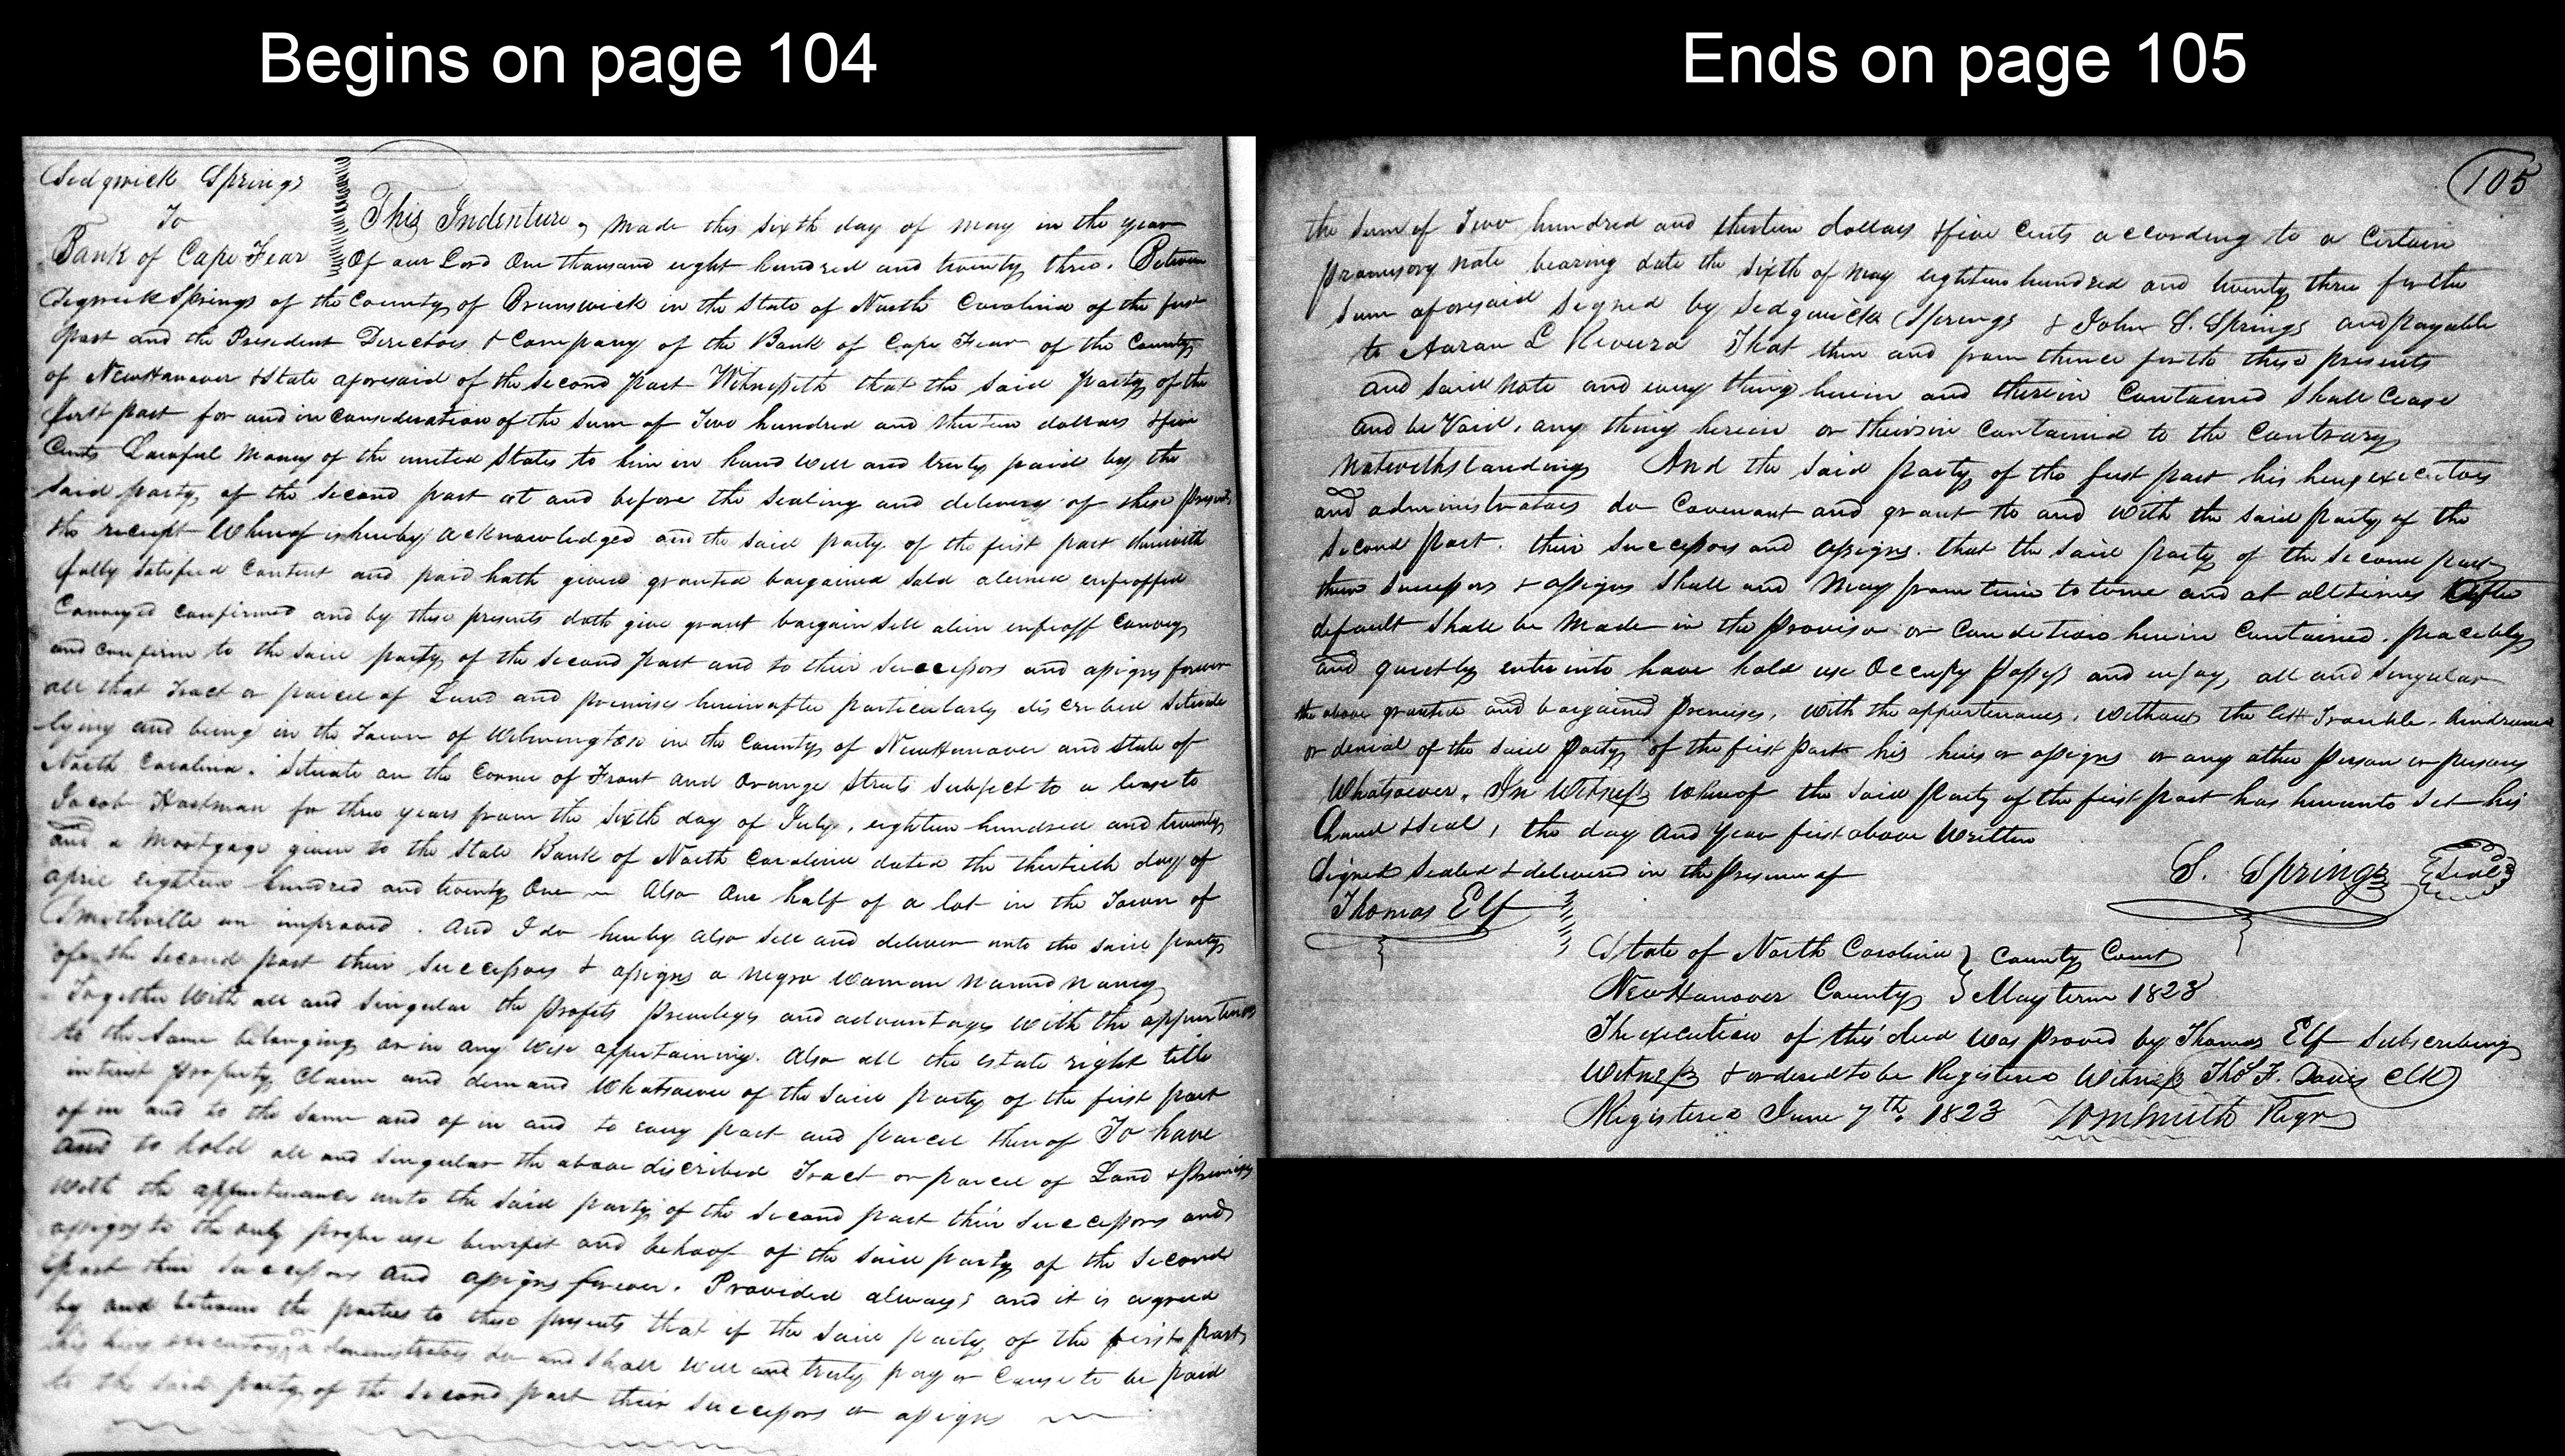 Begins on page 104
Sedgwick Springs
To
Bank of Cape Fear
This Indenture, made this sixth day of may in the year
Of our Lord One thousand eight hundred and twenty three. Between
Segwick Springs of the County of Brunswick in the State of North Carolina of the first
part and the President Directors & Company of the Bank of Cape Fear of the County
of New Hanover & State aforesaid of the second part Witnesseth that the said party of the
first part for and in consideration of the sum of Two hundred and thirteen dollars & five
Cents Lawful money of the united States to him in hand well and truly paid by the
said party of the second part at and before the sealing and delivery of these presents
the receipt Whereof is hereby acknowledged and the said party of the first part therewith
fully satisfied Content and paid hath given granted bargained sold aliened enfeoffed
Conveyed confirmed and by these presents doth give grant bargain sell alien enfeoff Convey
and confirm to the said party of the second part and to their successors and assigns forever
all that Tract or parcel of Land and premises hereinafter particularly discribed situate
lying and being in the Town of Wilmington in the County of New Hanover and State of
North Carolina. Situate on the Corner of Front and Orange Streets subject to a lease to
Jacob Hartman for three years from the sixth day of July, eighteen hundred and twenty
and a mortgage given to the State Bank of North Carolina dated the thirtieth day of
april eighteen hundred and twenty One Also One half of a lot in the Town of
Smithville un improved. And I do hereby also sell and deliver unto the said party
of the second part their successors & assigns a negro woman named nancy
Together with all and singular the profits priveleges and advantages with the appurtenances
to the same belonging or in any wise appertaining. Also all the estate right title
interest property Claim and demand Whatsoever of the said party of the first part
of in and to the same and of in and to every part and parcel thereof To have
and to hold all and singular the above discribed Tract or parcel of Land & premises
with the appurtenances unto the said party of the second part their successors and
assigns to the only proper use benefit and behoof of the said party of the second
part their successors and assigns forever. Provided always and it is agreed
by and between the parties to these presents that if the said party of the first part
his heirs executors administrators do and shall well and truly pay or Cause to be paid
to the said party of the second part their successors or assigns
Ends on page 105
105
the sum of Two hundred and thirteen dollars & five Cents according to a Certain
promissory note bearing date the sixth of may eighteen hundred and twenty three for the
sum aforesaid signed by Sedgwick Springs & John S. Springs and payable
to Aaron L Rivera That then and from thence forth these presents
and said note and every thing herein and therein Contained shall Cease
and be Void, any thing herein or therein contained to the Contrary
notwithstanding And the said party of the first part his heirs executors
and administrators do Covenant and grant to and with the said party of the
second part. their successors and assigns. that the said party of the second part
their successors & assigns shall and may from time to time and at all times After
default shall be made in the Proviso or Condition herein Contained. peaceably
and quietly enter into have hold use Occupy Possess and enjoy all and singular
the above granted and bargained Premises, with the appurtenances, without the lett Trouble, hindrance
or denial of the said party of the first part his heirs or assigns or any other Person or persons
Whatsoever. In Witness whereof the said party of the first part has hereunto set his
hand & seal, the day and year first above Written
Signed sealed & delivered in the Presence of
S. Springs Seal
Thomas Elf
State of North Carolina } County Court
New Hanover County } May term 1823
The execution of this deed was proved by Thomas Elf subscribing
Witness & ordered to be Registered Witness Thos. F. Davis Clk
Registered June 7th 1823 Wm Smith Regr